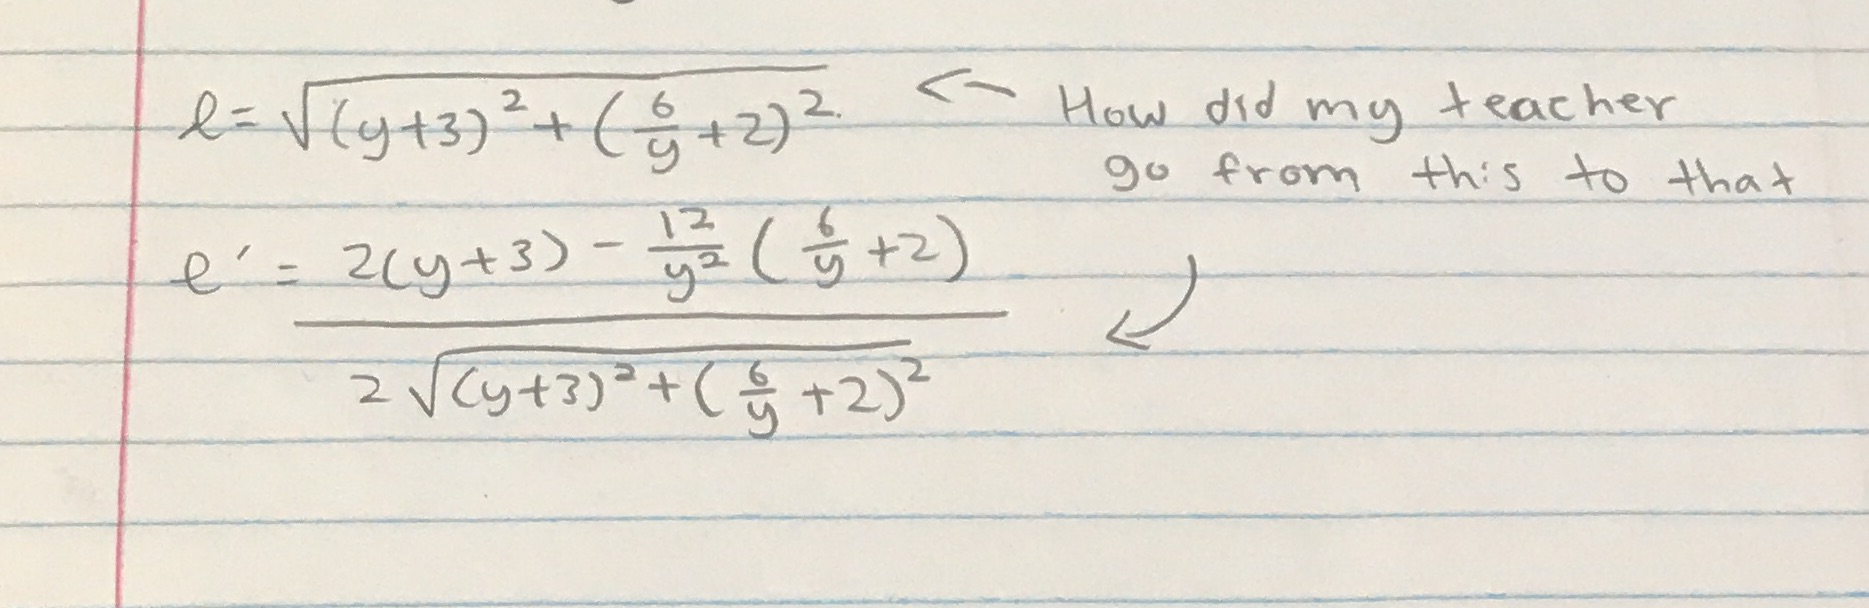 l = √((y+3)² + (6/y + 2)²). <- How did my teacher
go from this to that
l' = (2(y+3) - 12/y² (6/y + 2)) / (2√((y+3)² + (6/y + 2)²))